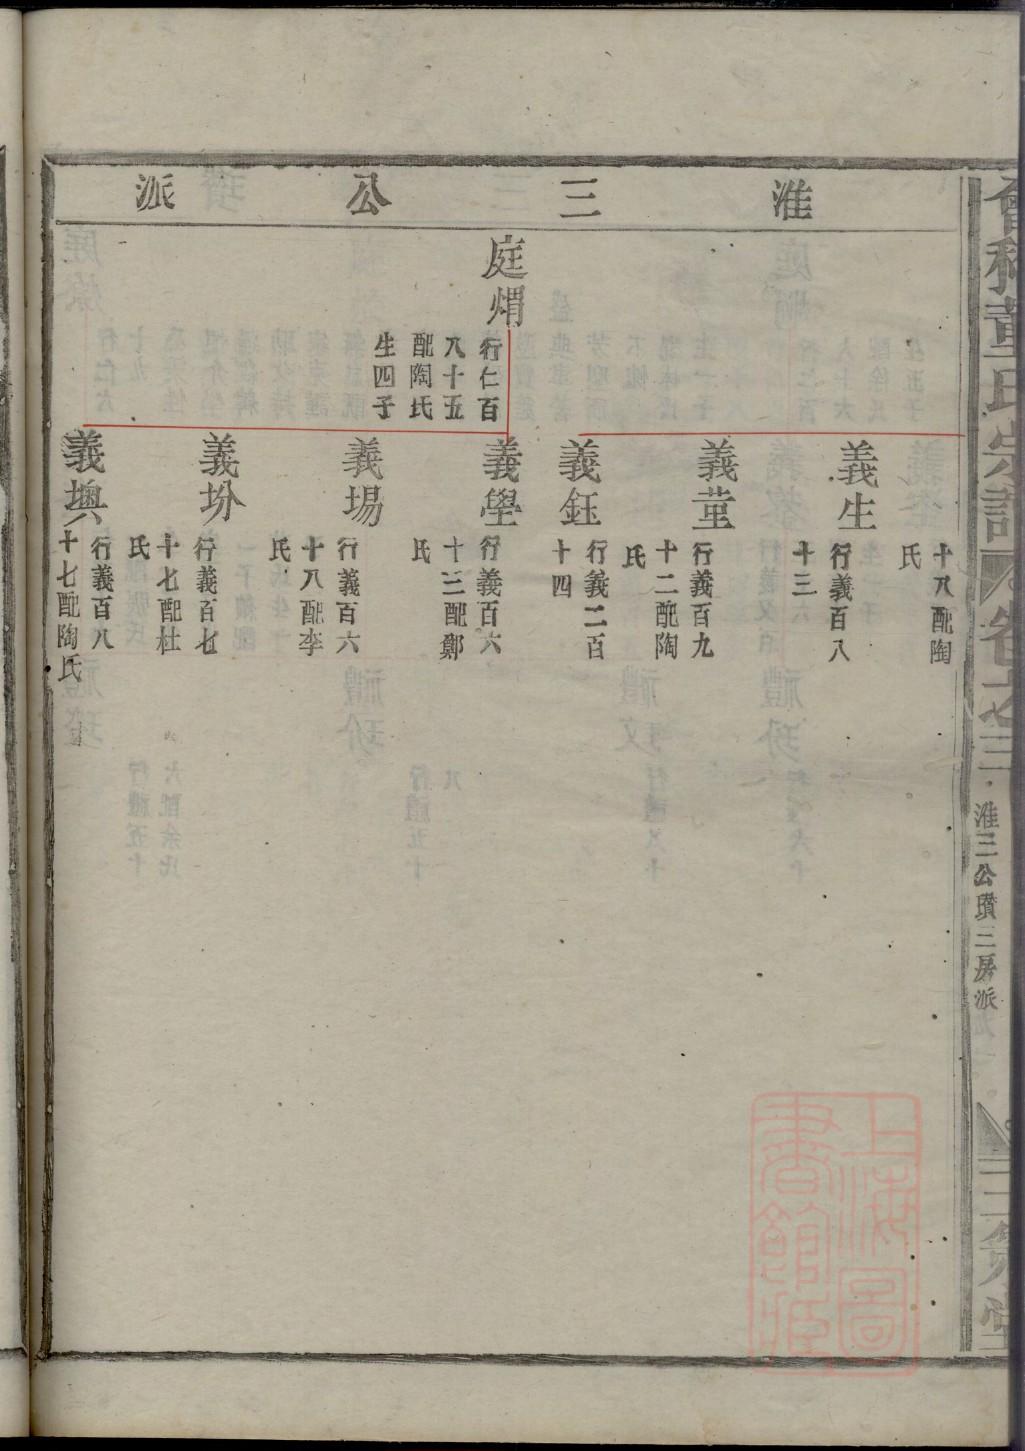 淮三公派
十八配陶
氏
義生
行義百八
十三
義蕫
行義百九
十二配陶
氏
義鈺
行義二百
十四
庭熠
行仁百
八十五
配陶氏
生四子
義學
行義百六
十三配鄭
氏
義場
行義百六
十八配李
氏
義坋
行義百七
十七配杜
氏
義墺
行義百八
十七配陶氏
會稽董氏宗譜
卷六之三
淮三公瓚三房派
三
上海圖書館藏